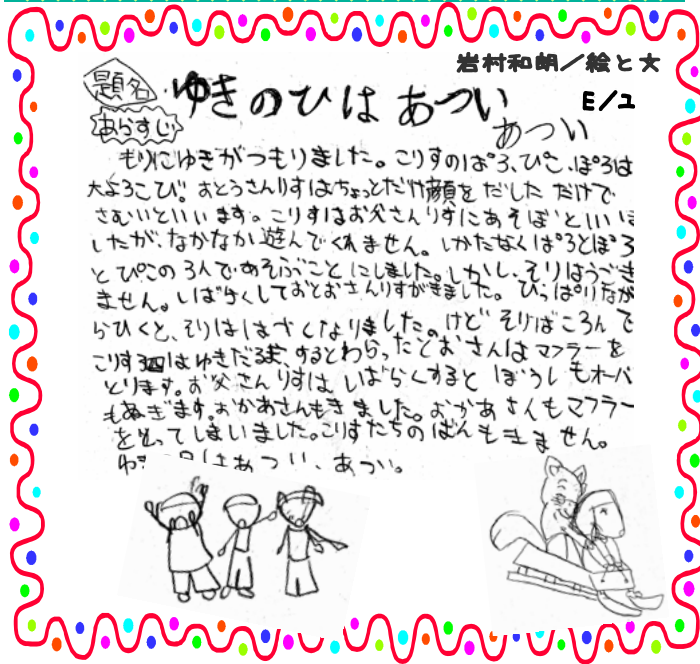 岩村和朗／絵と文
題名 ゆきのひは あつい
E/ユ
あらすじ
あつい
もりにゆきがつもりました。こりすのぱろ、ぴこ、ぽろは
大よろこび。おとうさんりすはちょっとだけ顔を だした だけで
さむいといいます。こりすはお父さんりすにあそぼうといいま
したが、なかなか遊んでくれません。しかたなくぱろとぽろ
とぴこの3人であそぶことにしました。しかし、そりはうごき
ません。しばらくしておとおさんりすがきました。ひっぱりなが
らひくと、そりははやくなりました。けど そりはころんで
こりす3匹はゆきだるま、するとわらったとおさんはマフラーを
とります。お父さんりすは しばらくすると ぼうし もオーバー
もぬぎます。おかあさんもきました。おかあさんもマフラー
をとってしまいました。こりすたちのばんもきません。
はあつい、あつい。